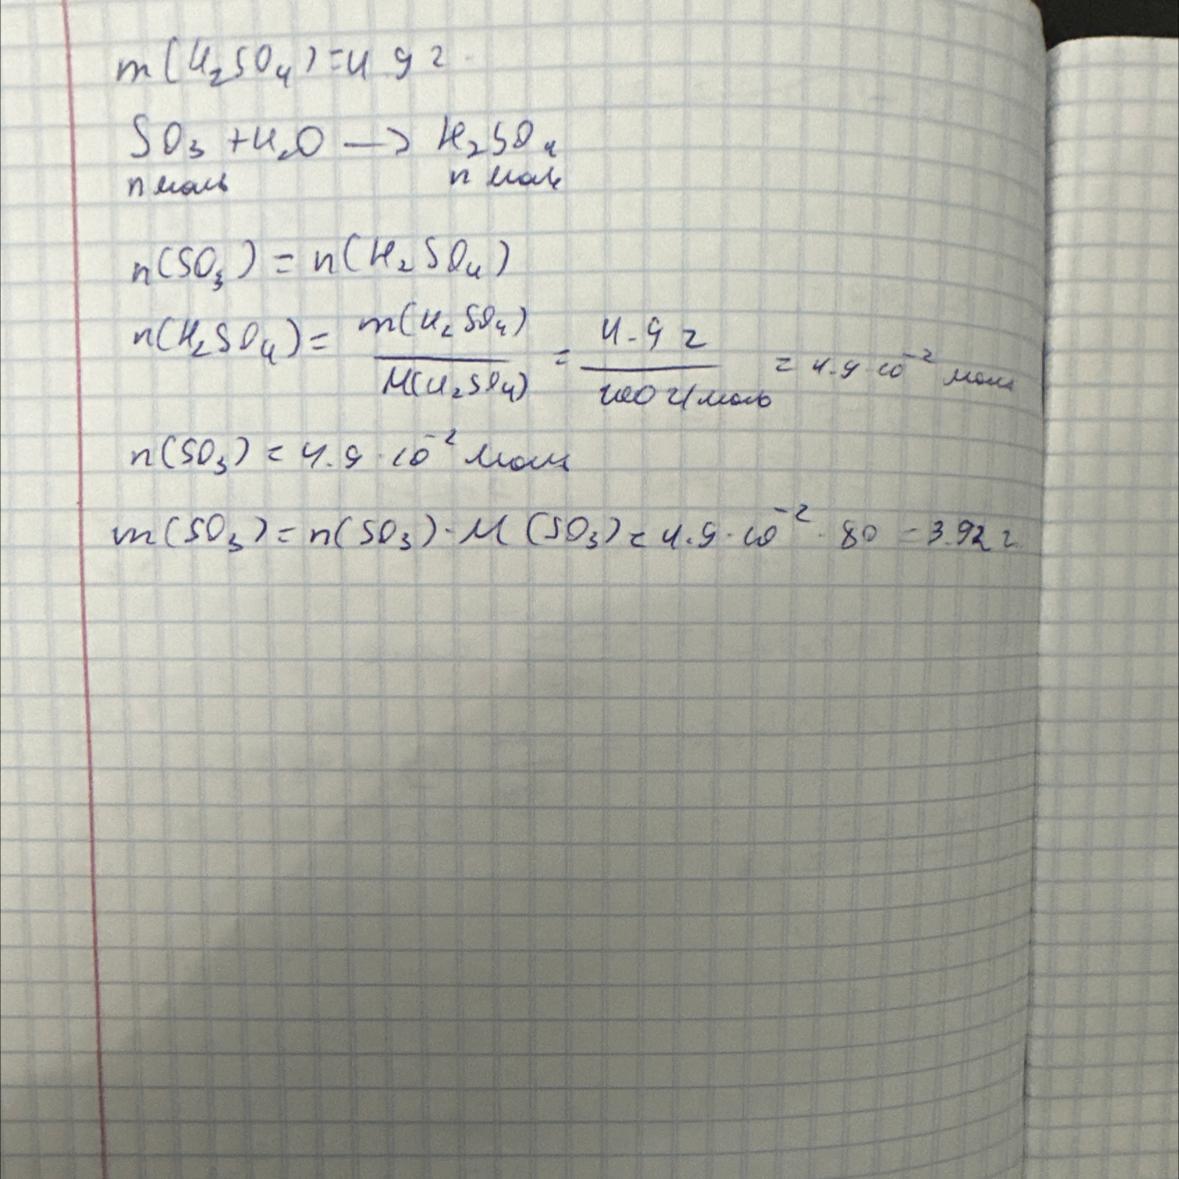 m(H₂SO₄)=4.9 г
SO₃ + H₂O → H₂SO₄
n моль n моль
n(SO₃) = n(H₂SO₄)
n(H₂SO₄) = m(H₂SO₄) / M(H₂SO₄) = 4.9 г / 100 г/моль = 4.9·10⁻² моль
n(SO₃) = 4.9·10⁻² моль
m(SO₃) = n(SO₃)·M(SO₃) = 4.9·10⁻²·80 = 3.92 г